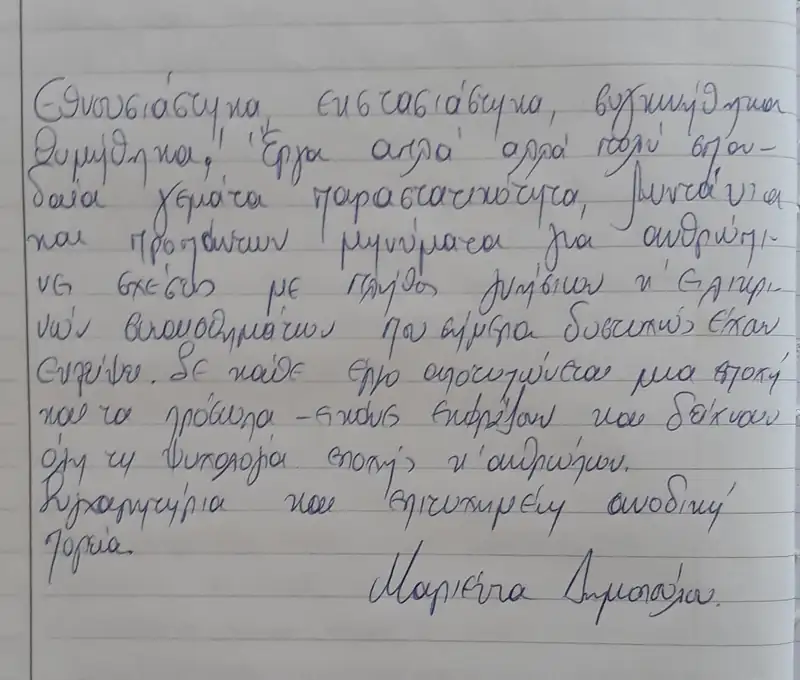 Ενθουσιάστηκα, εκστασιάστηκα, συγκινήθηκα
θυμήθηκα! Έργα απλά αλλά πολύ σπου-
δαία γεμάτα παραστατικότητα, ζωντάνια
και προπάντων μηνύματα για ανθρώπι-
νες σχέσεις με πλήθος γνήσιων κ' ειλικρι-
νών συναισθημάτων που σήμερα δυστυχώς έχουν
εκλείψει. Σε κάθε έργο αποτυπώνεται μια εποχή
και τα πρόσωπα - εικόνες εκφράζουν και δείχνουν
όλη τη ψυχολογία εποχής κ' ανθρώπων.
Συγχαρητήρια και επιτυχημένη ανοδική
πορεία.
Μαριέττα Δημοπούλου.